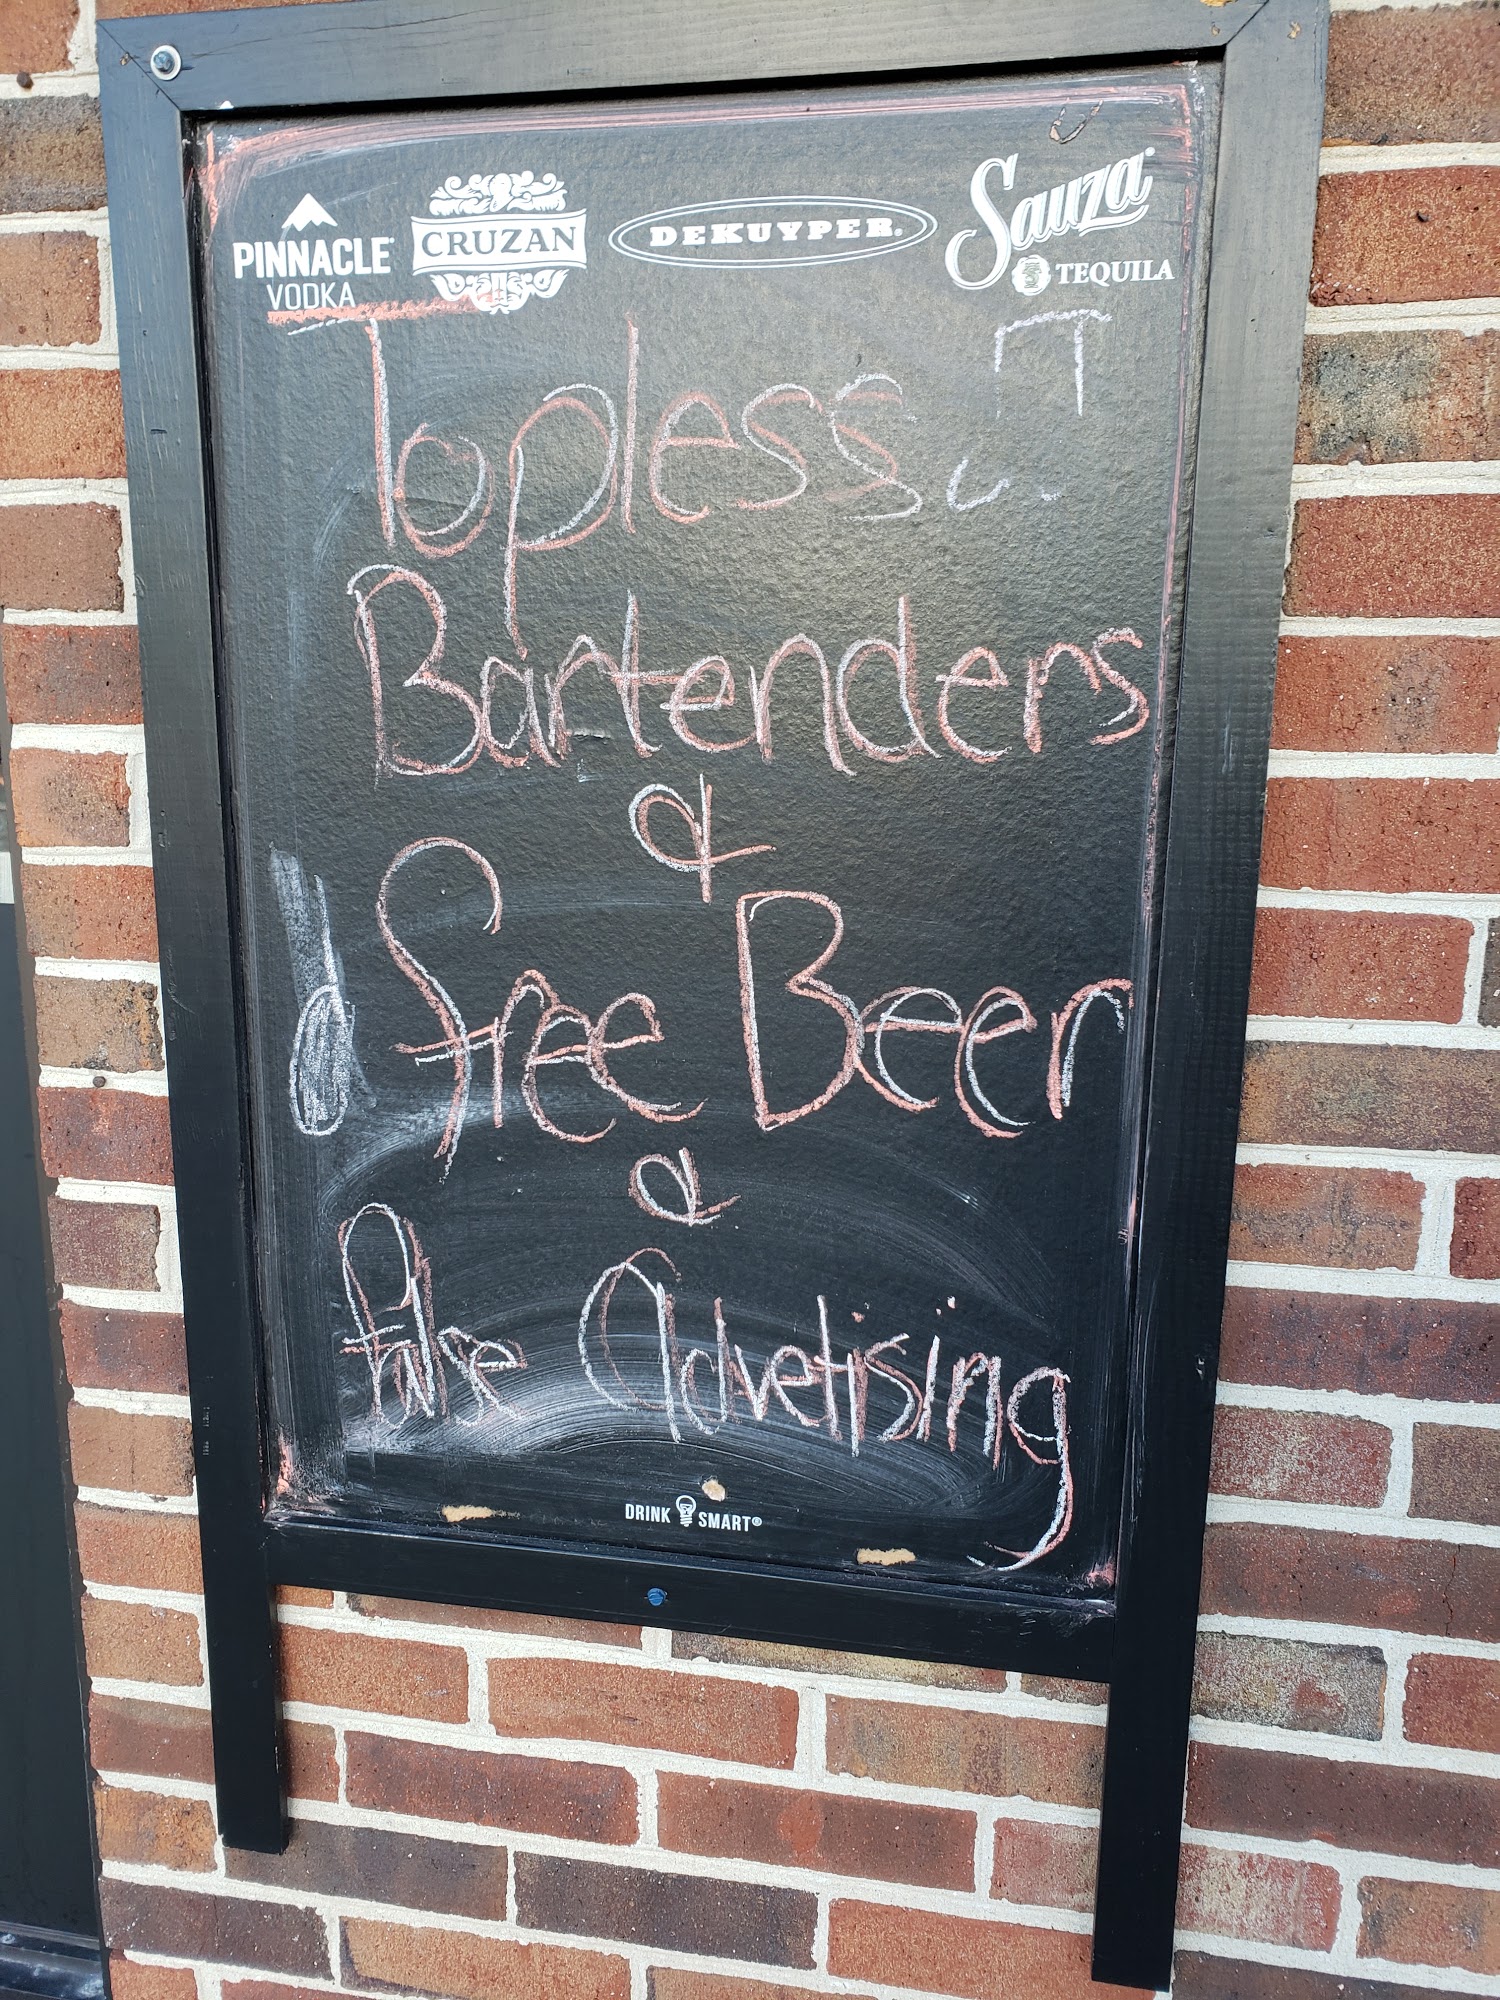 PINNACLE® VODKA
CRUZAN
DEKUYPER®
Sauza® TEQUILA
Topless
Bartenders
&
Free Beer
&
False Advetising
DRINK SMART®